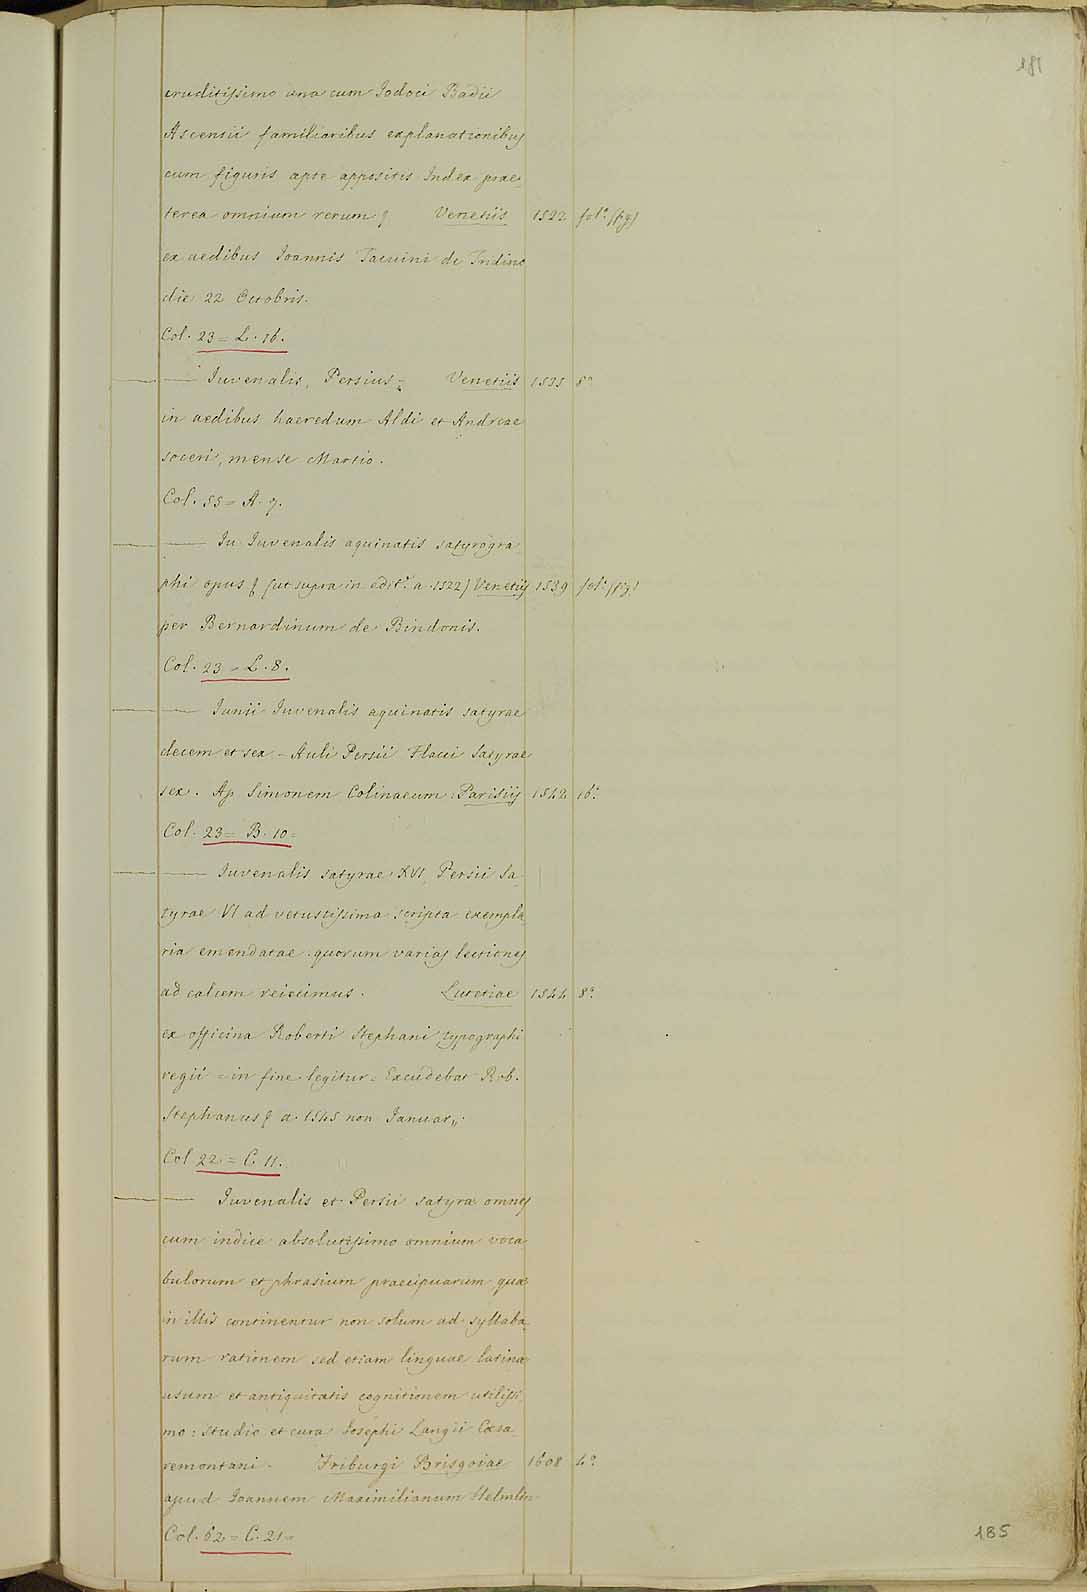 181
eruditissimo una cum Jodoci Badii
Ascensii familiaribus explanationibus
cum figuris apte appositis Index prae-
terea omnium rerum & Venetiis 1522 fol.° (fig)
ex aedibus Joannis Tacuini de Tridino
die 22 Octobris.
Col. 23 = L. 16.
—— Juvenalis, Persius = Venetiis 1535 8°
in aedibus haeredum Aldi et Andreae
soceri, mense Martio.
Col. 55 = A. 7.
—— In Juvenalis aquinatis satyrogra-
phi opus & (ut supra in edit.° a. 1522) Venetiis 1539 fol.° (fig)
per Bernardinum de Bindonis.
Col. 23 = L. 8.
—— Junii Juvenalis aquinatis satyrae
decem et sex - Auli Persii Flacci Satyrae
sex. Ap. Simonem Colinaeum: Parisiis 1542 16°
Col. 23 = B. 10 =
—— Juvenalis satyrae XVI, Persii Sa-
tyrae VI ad vetustissima scripta exempla-
ria emendatae: quorum varias lectiones
ad calcem reiecimus. Lutetiae 1544 8°
ex officina Roberti Stephani typographi
regii = in fine legitur = Excudebat Rob.
Stephanus & a. 1545 non Januar.,
Col 22 = C. 11.
—— Juvenalis et Persii satyrae omnes
cum indice absolutissimo omnium voca-
bulorum et phrasium praecipuarum, quae
in illis continentur non solum ad syllaba-
rum rationem sed etiam linguae latinae
usum et antiquitatis cognitionem utilissi-
mo: studio et cura Josephi Langii Caesa-
remontani. Friburgi Brisgoiae 1608 4°
apud Joannem Maximilianum Helmlin
Col. 62 = C. 21 =
185